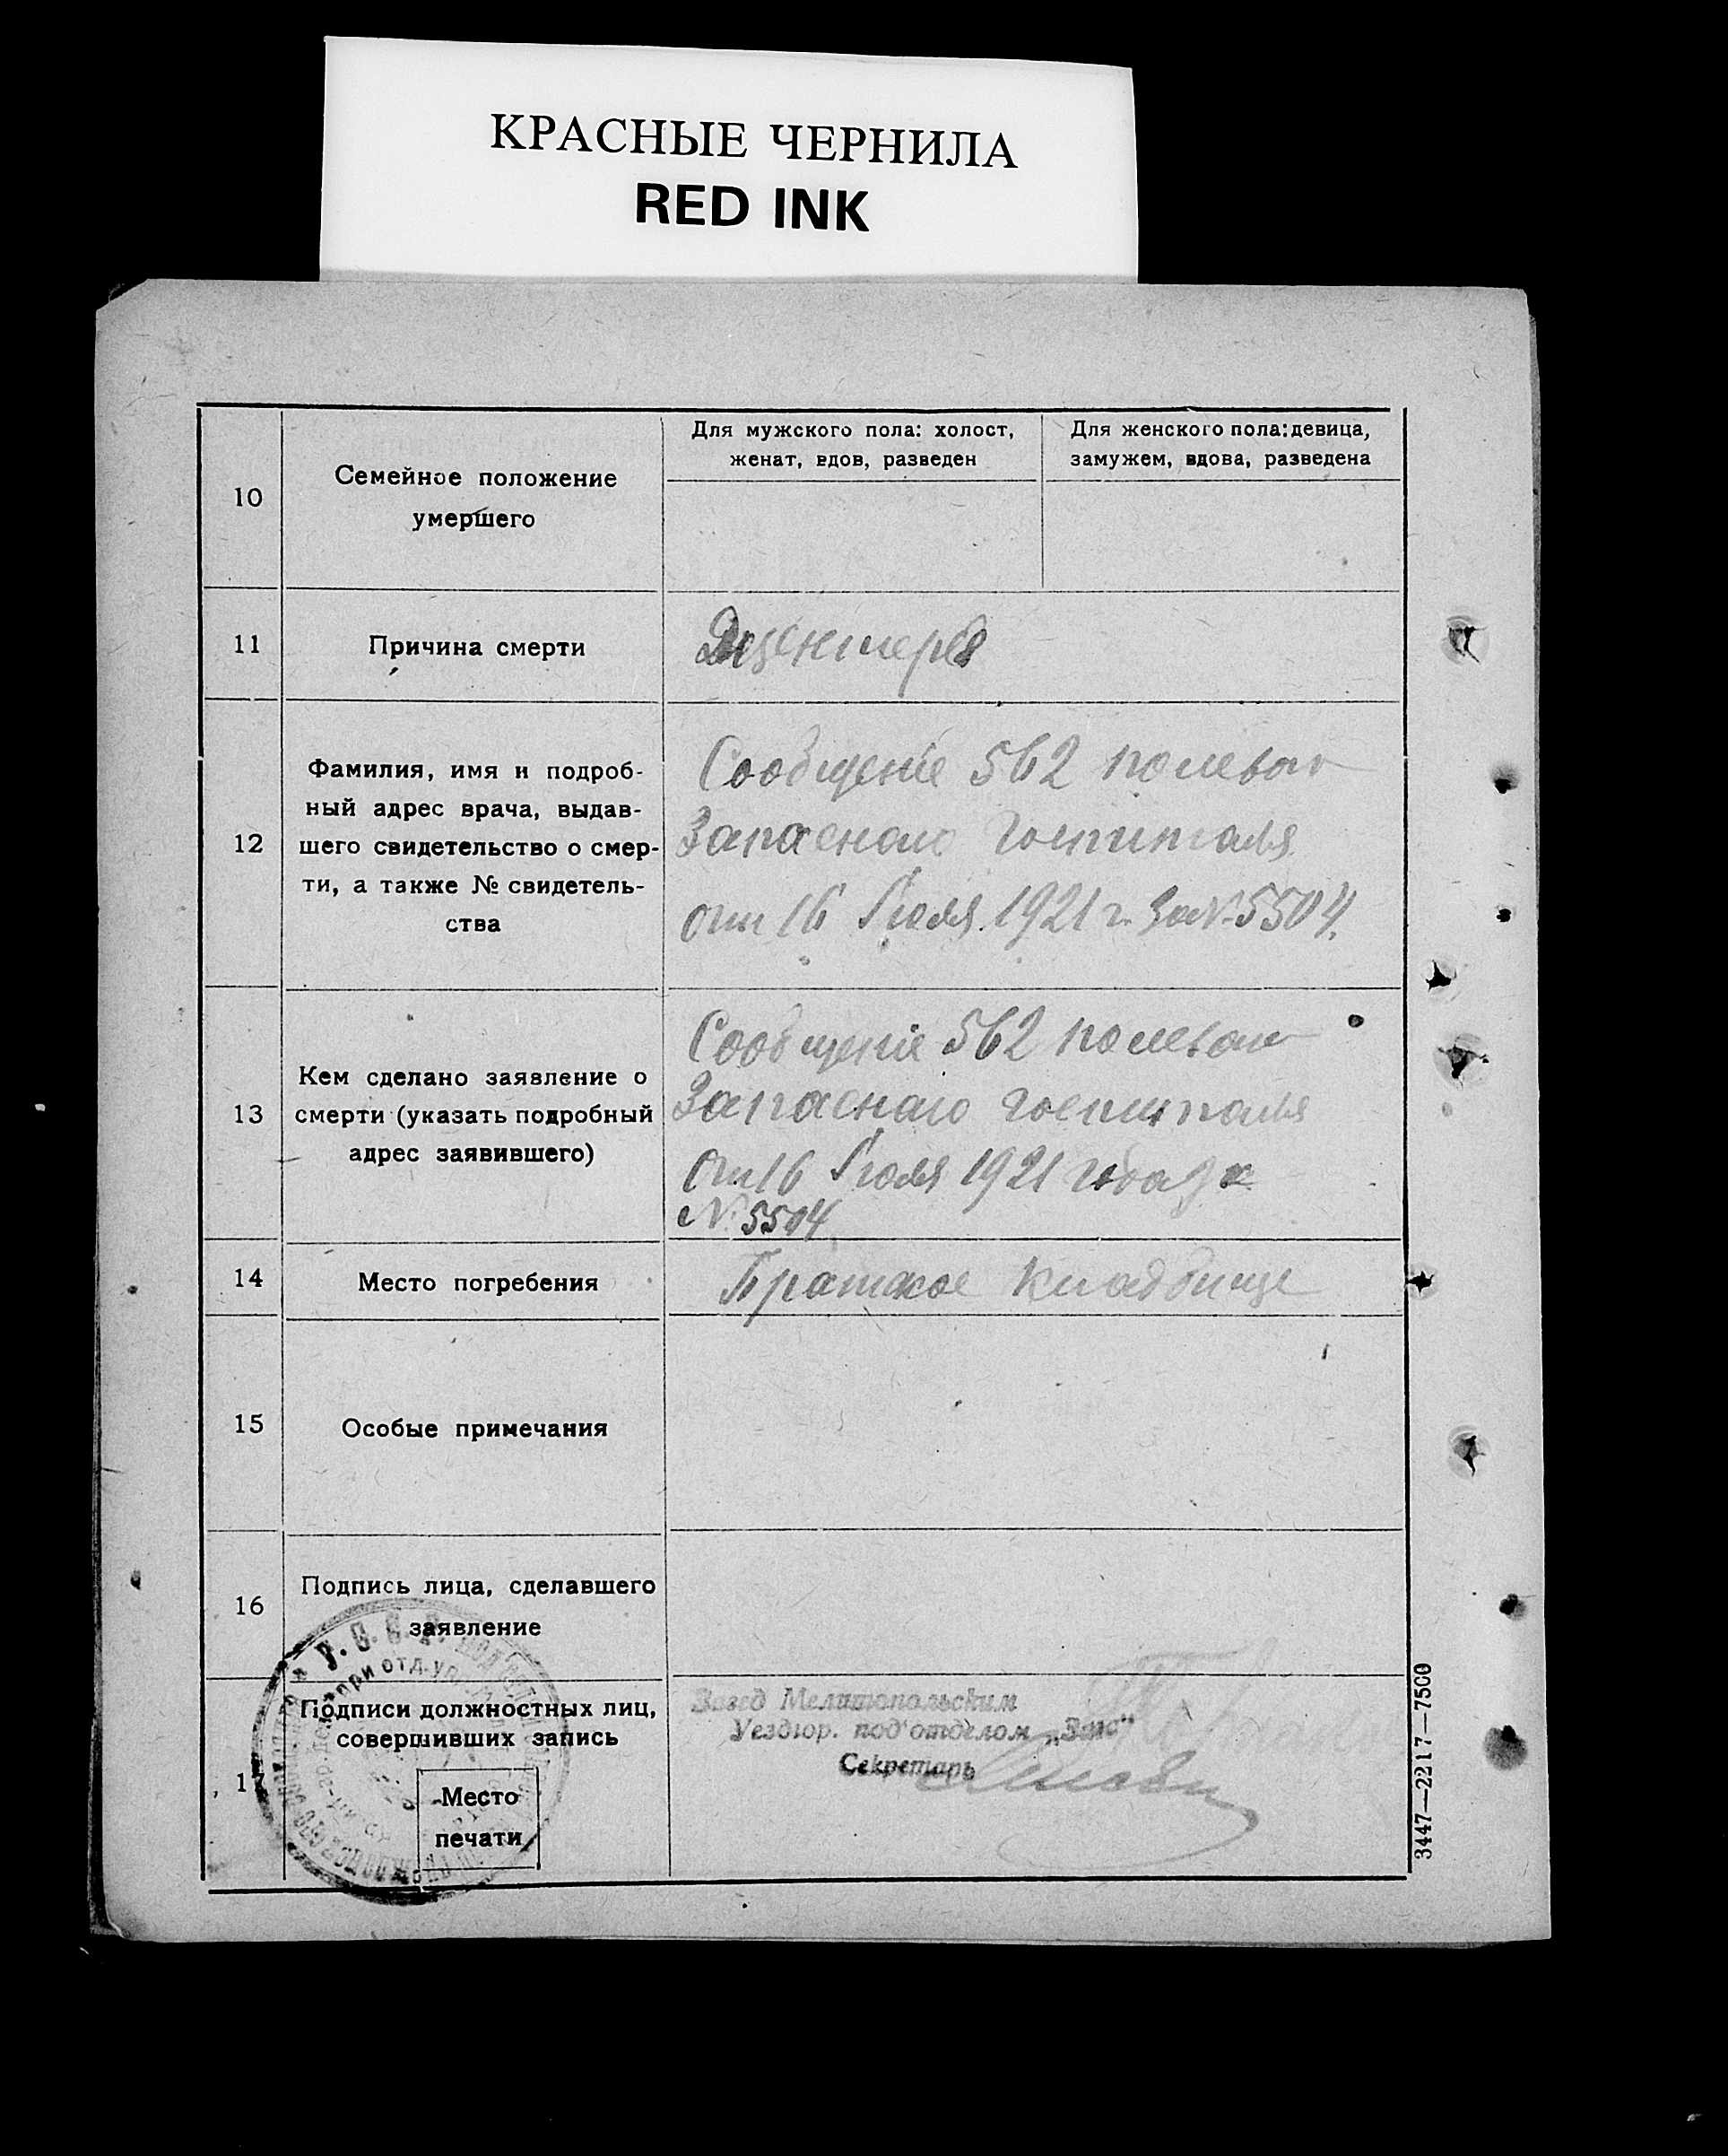 КРАСНЫЕ ЧЕРНИЛА
RED INK
10
Семейное положение
умершего
Для мужского пола: холост,
женат, вдов, разведен
Для женского пола: девица,
замужем, вдова, разведена
11
Причина смерти
12
Фамилия, имя и подроб-
ный адрес врача, выдав-
шего свидетельство о смер-
ти, а также № свидетель-
ства
Сообщеніе 562 полевого
Запаснаго госпиталя
от 16 Июля 1921 г. за № 5504.
13
Кем сделано заявление о
смерти (указать подробный
адрес заявившего)
Сообщеніе 562 полевого
Запаснаго госпиталя
от 16 Июля 1921 года за
№ 5504
14
Место погребения
Братское кладбище
15
Особые примечания
16
Подпись лица, сделавшего
заявление
17
Подписи должностных лиц,
совершивших запись
Место
печати
Завед Мелитопольским
Уездгор. под'отделом „Загс"
Секретарь
У. С. С. Р.
3447—2217—7500